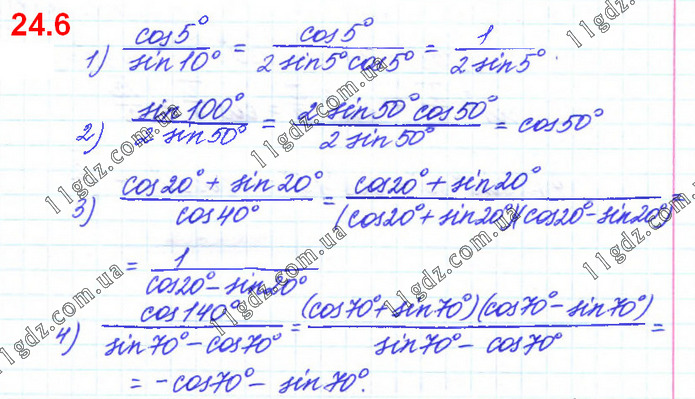 24.6
1) cos5°/sin10° = cos5°/(2 sin5° cos5°) = 1/(2 sin5°).
2) sin100°/(2 sin50°) = (2 sin50° cos50°)/(2 sin50°) = cos50°
3) (cos20° + sin20°)/cos40° = (cos20° + sin20°)/((cos20° + sin20°)(cos20° - sin20°)) =
= 1/(cos20° - sin20°)
4) cos140°/(sin70° - cos70°) = ((cos70° + sin70°)(cos70° - sin70°))/(sin70° - cos70°) =
= -cos70° - sin70°.
11gdz.com.ua
11gdz.com.ua
11gdz.com.ua
11gdz.com.ua
11gdz.com.ua
11gdz.com.ua